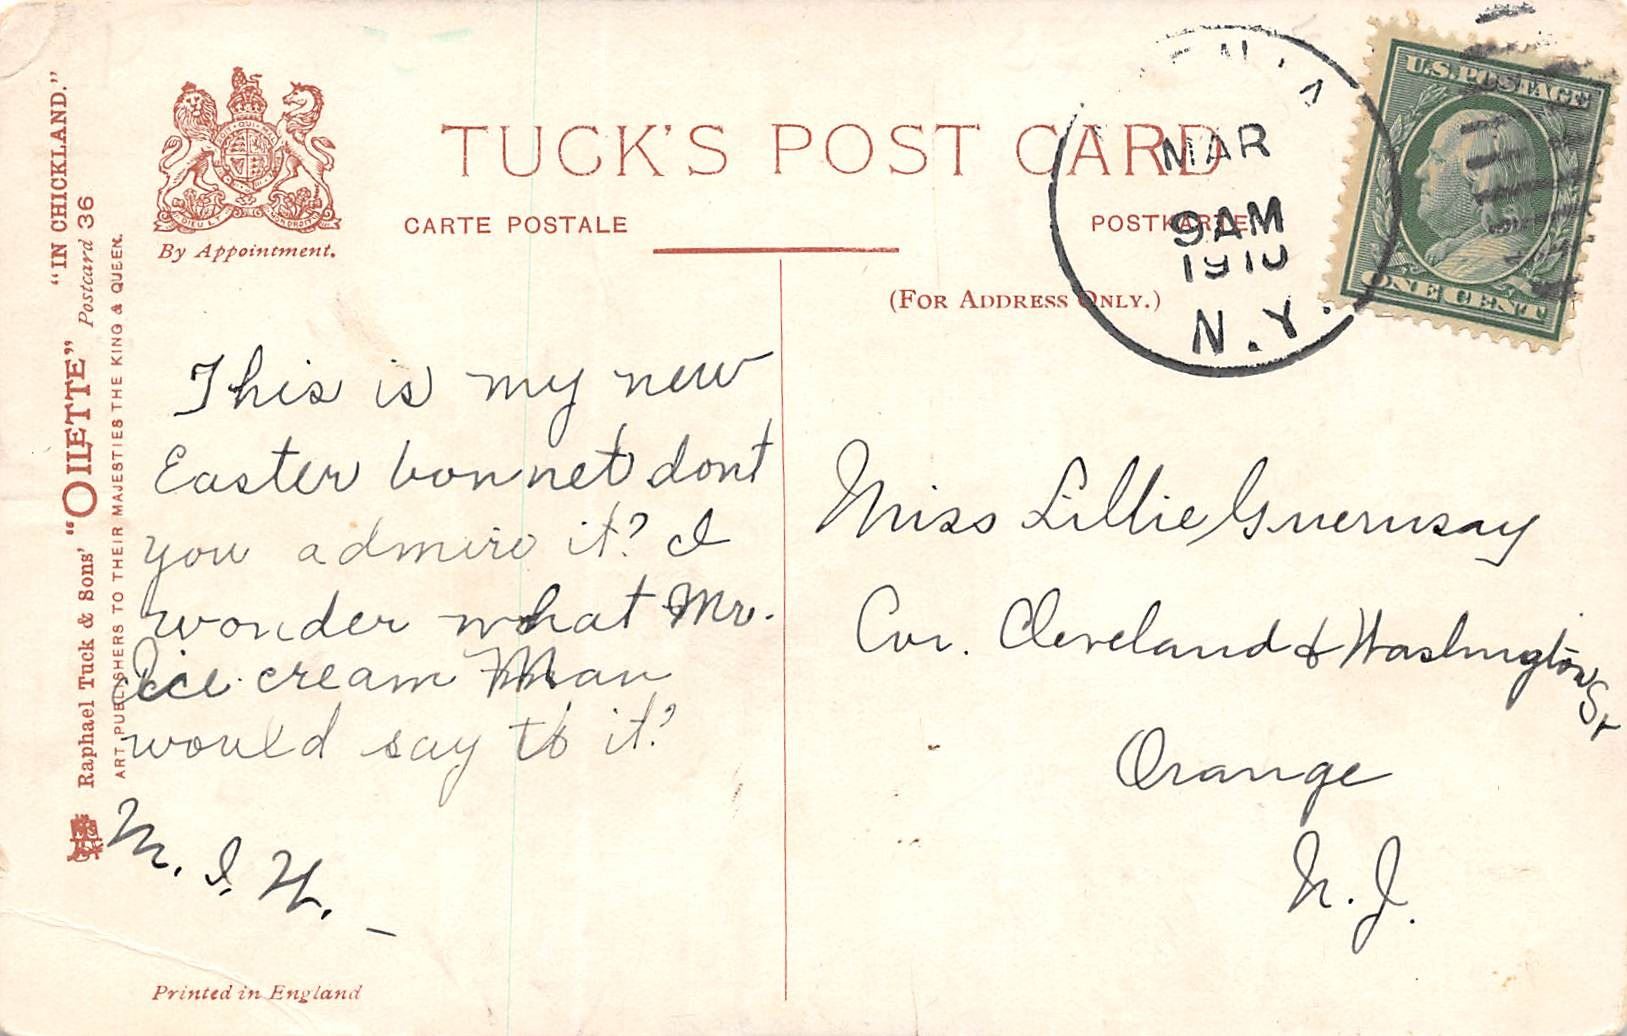 "IN CHICKLAND."
Raphael Tuck & Sons' "OILETTE" Postcard 36
ART PUBLISHERS TO THEIR MAJESTIES THE KING & QUEEN.
By Appointment.
TUCK'S POST CARD
CARTE POSTALE
POSTKARTE
(FOR ADDRESS ONLY.)
MAR
9 AM
1910
N.Y.
U.S. POSTAGE
ONE CENT
This is my new
Easter bonnet dont
you admire it? I
wonder what Mr.
Ice cream Man
would say to it?
M. I. H. –
Miss Lillie Guernsay
Cor. Cleveland & Washington St
Orange
N. J.
Printed in England